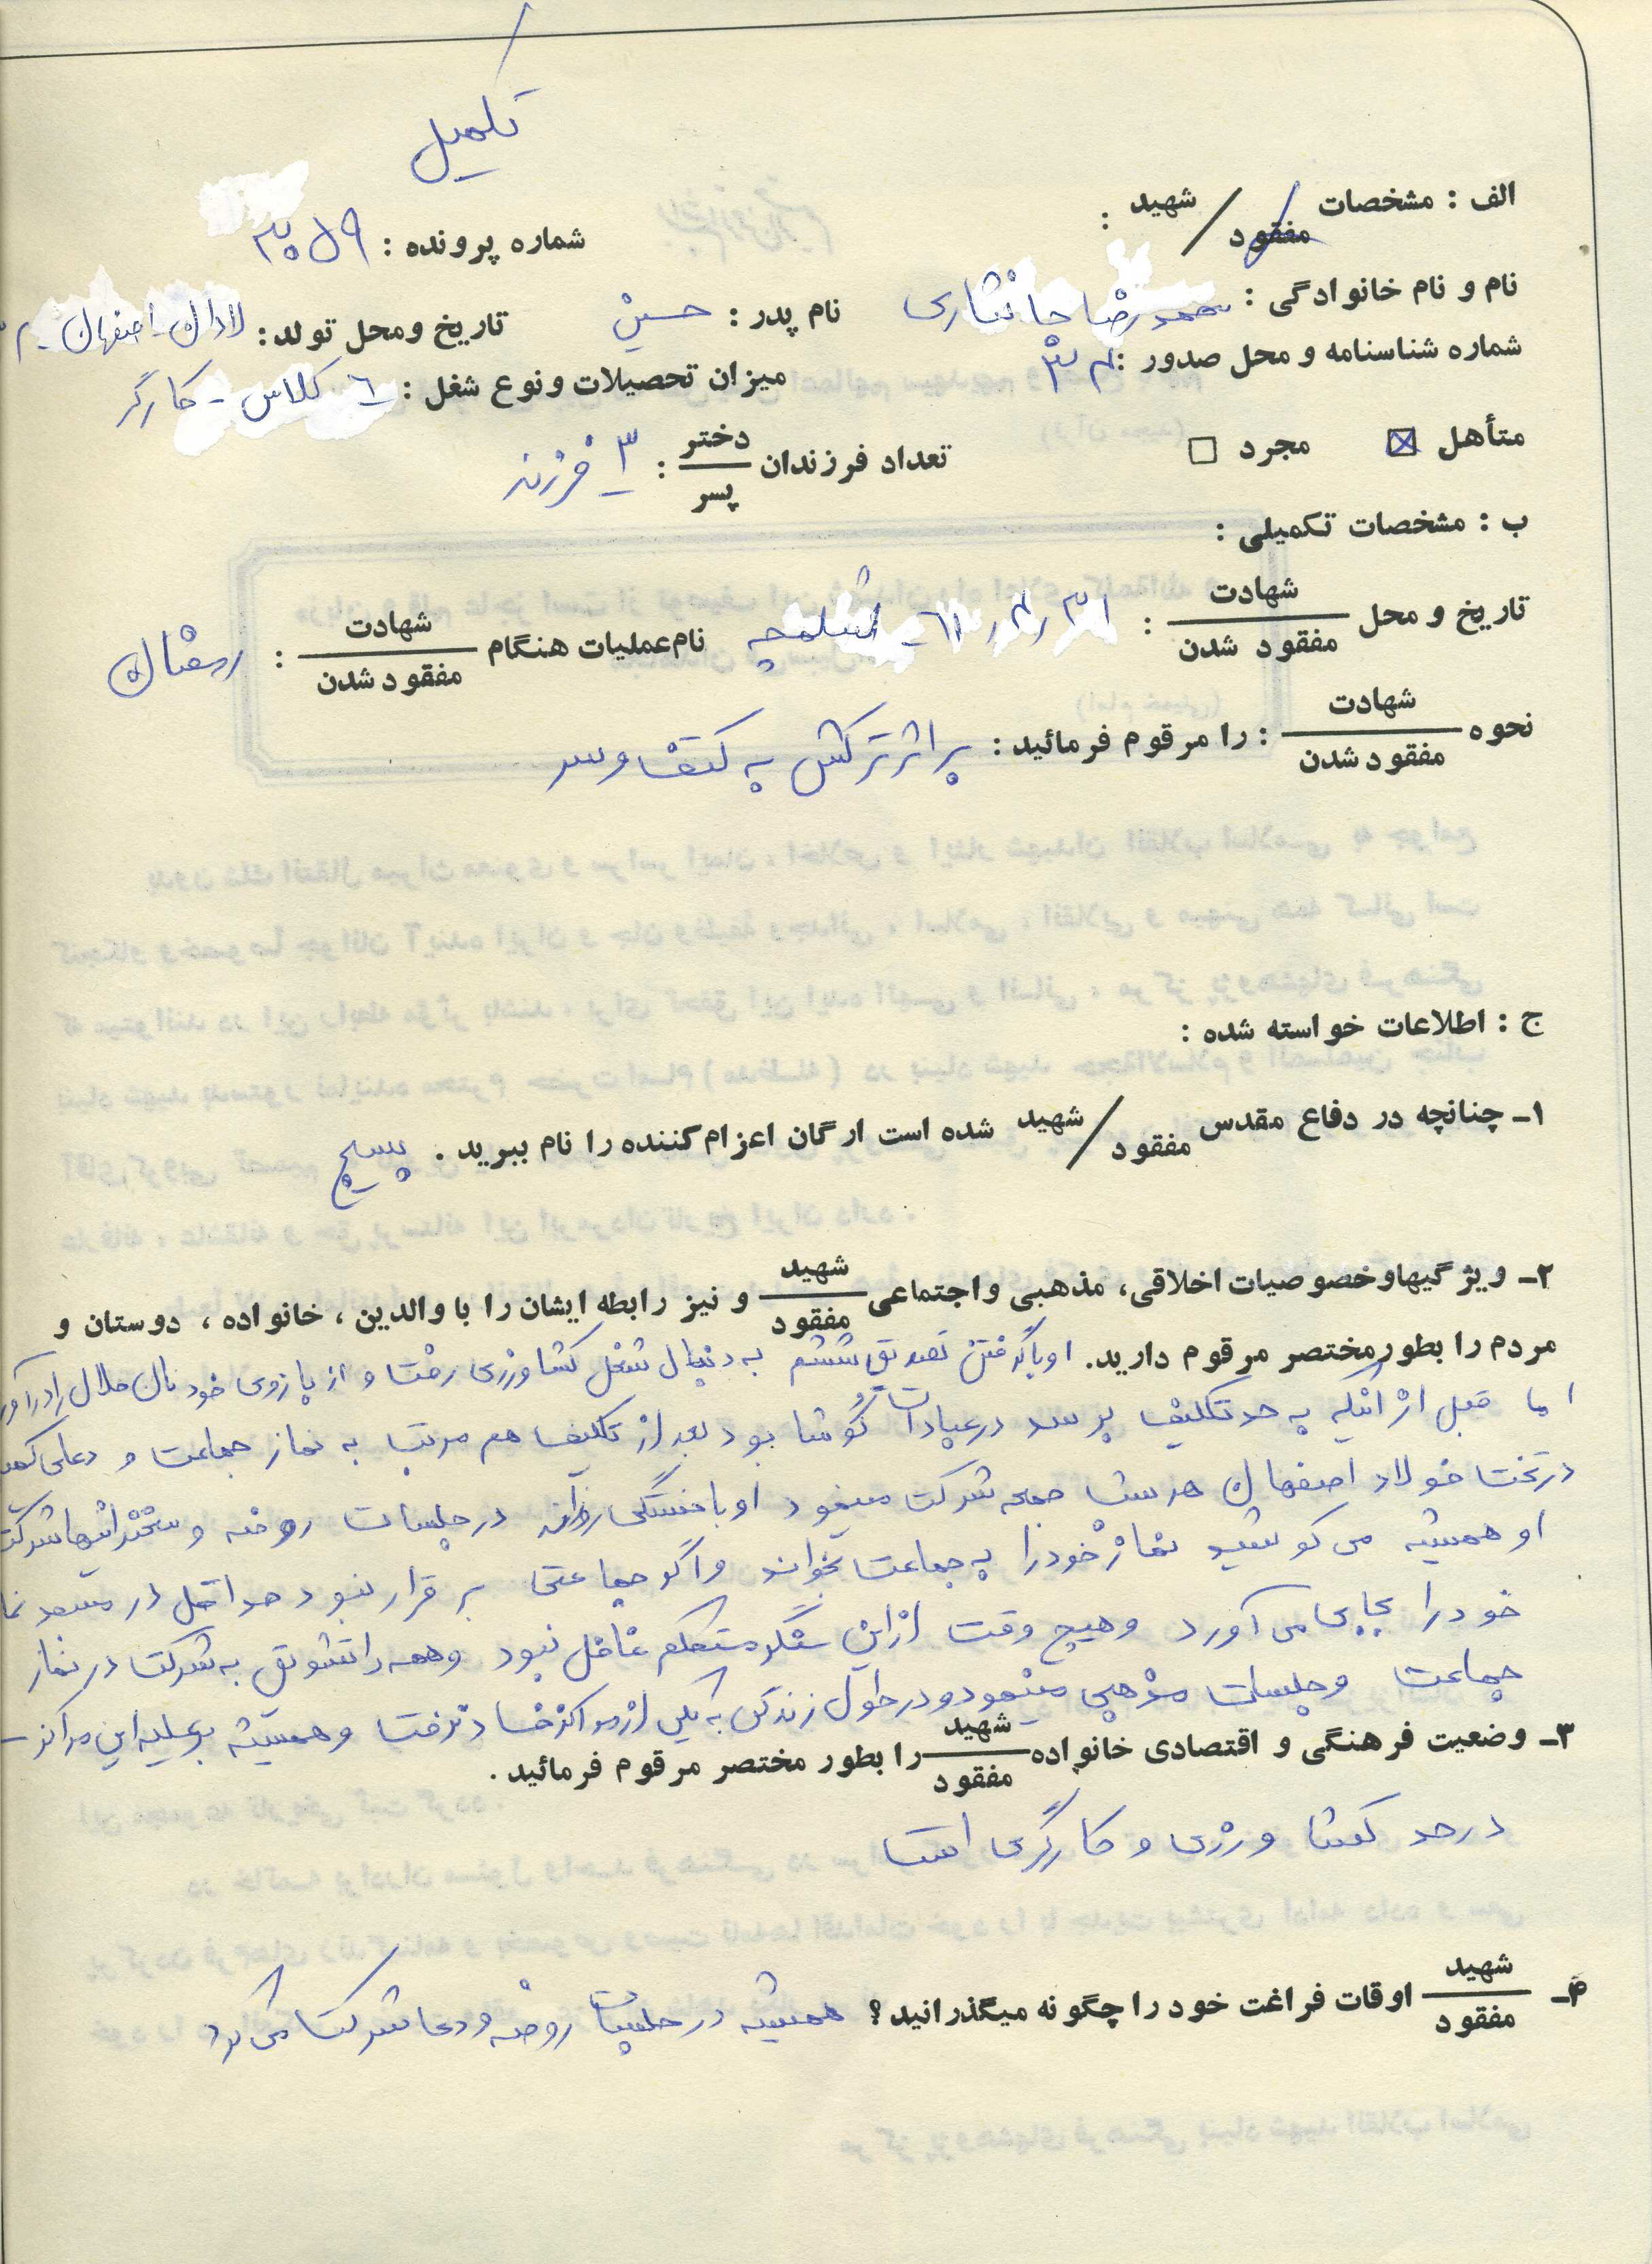 تکمیل
الف : مشخصات شهید / مفقود :
شماره پرونده : ۳۰۵۹
نام و نام خانوادگی : محمدرضا جانثاری
نام پدر : حسین
تاریخ و محل تولد : لادان - اصفهان -
شماره شناسنامه و محل صدور :
میزان تحصیلات و نوع شغل : ٦ کلاس - کارگر
متأهل ☒ مجرد ☐ تعداد فرزندان دختر / پسر : ۳ فرزند
ب : مشخصات تکمیلی :
تاریخ و محل شهادت / مفقود شدن : ۳۱ر۴ر٦۱ - شلمچه
نام عملیات هنگام شهادت / مفقود شدن : رمضان
نحوه شهادت / مفقود شدن : را مرقوم فرمائید : بر اثر ترکش به کتف و سر
ج : اطلاعات خواسته شده :
۱ـ چنانچه در دفاع مقدس شهید / مفقود شده است ارگان اعزام کننده را نام ببرید . بسیج
۲ـ ویژگیها و خصوصیات اخلاقی، مذهبی و اجتماعی شهید / مفقود و نیز رابطه ایشان را با والدین ، خانواده ، دوستان و
مردم را بطور مختصر مرقوم دارید. او با گرفتن تصدیق ششم به دنبال شغل کشاورزی رفت و از بازوی خود نان حلال را در آورد
اما قبل از اینکه به حد تکلیف برسد در عبادات کوشا بود بعد از تکلیف هم مرتب به نماز جماعت و دعای کمیل
در تخت فولاد اصفهان هر شب جمعه شرکت مینمود او با خستگی روزانه در جلسات روضه و سخنرانیها شرکت
او همیشه می کوشید نماز خود را به جماعت بخواند و اگر جماعتی بر قرار نبود حداقل در مسجد نماز
خود را بجا می آورد و هیچ وقت از این سنگر مستحکم غافل نبود و همه را تشویق به شرکت در نماز
جماعت و جلسات مذهبی مینمود و در طول زندگی به یکی از مراکز فساد نرفت و همیشه بر علیه این مراکز -
۳ـ وضعیت فرهنگی و اقتصادی خانواده شهید / مفقود را بطور مختصر مرقوم فرمائید .
در حد کشاورزی و کارگری است
۴ـ شهید / مفقود اوقات فراغت خود را چگونه میگذرانید ؟ همیشه در جلسات روضه و دعا شرکت می کرد